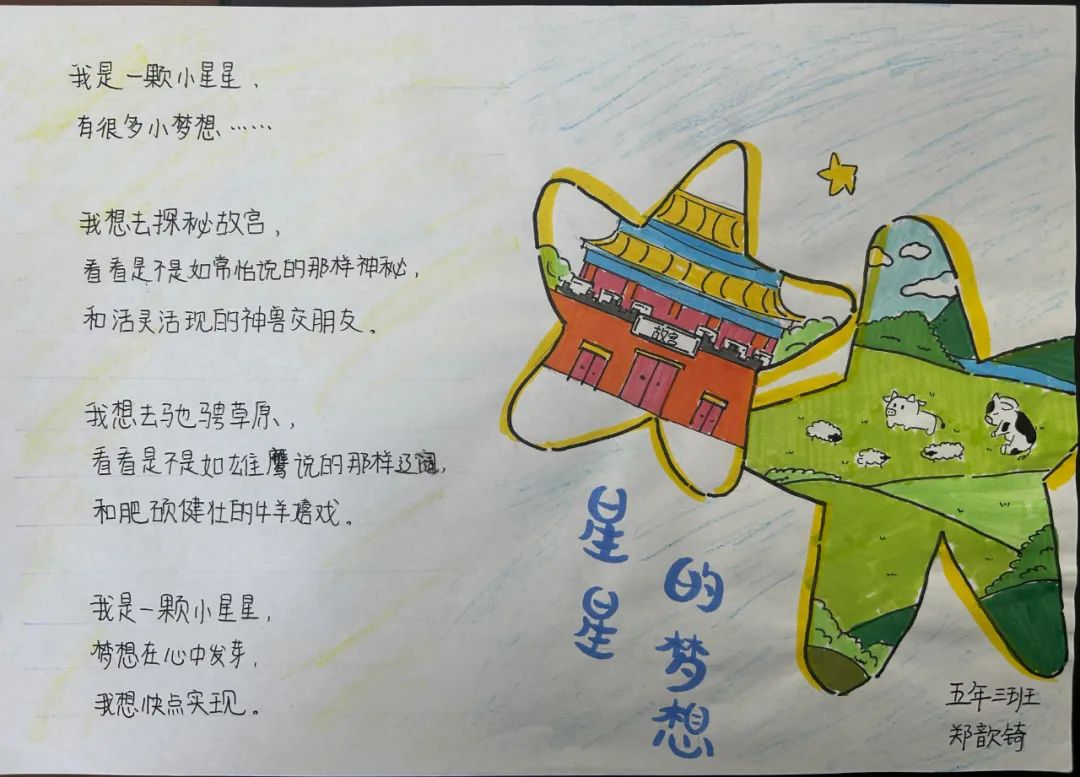 我是一颗小星星，
有很多小梦想……
我想去探秘故宫，
看看是不是如常怡说的那样神秘，
和活灵活现的神兽交朋友。
我想去驰骋草原，
看看是不是如雄鹰说的那样辽阔，
和肥硕健壮的牛羊嬉戏。
我是一颗小星星，
梦想在心中发芽，
我想快点实现。
故宫
星星
的梦想
五年三班
郑歆锜